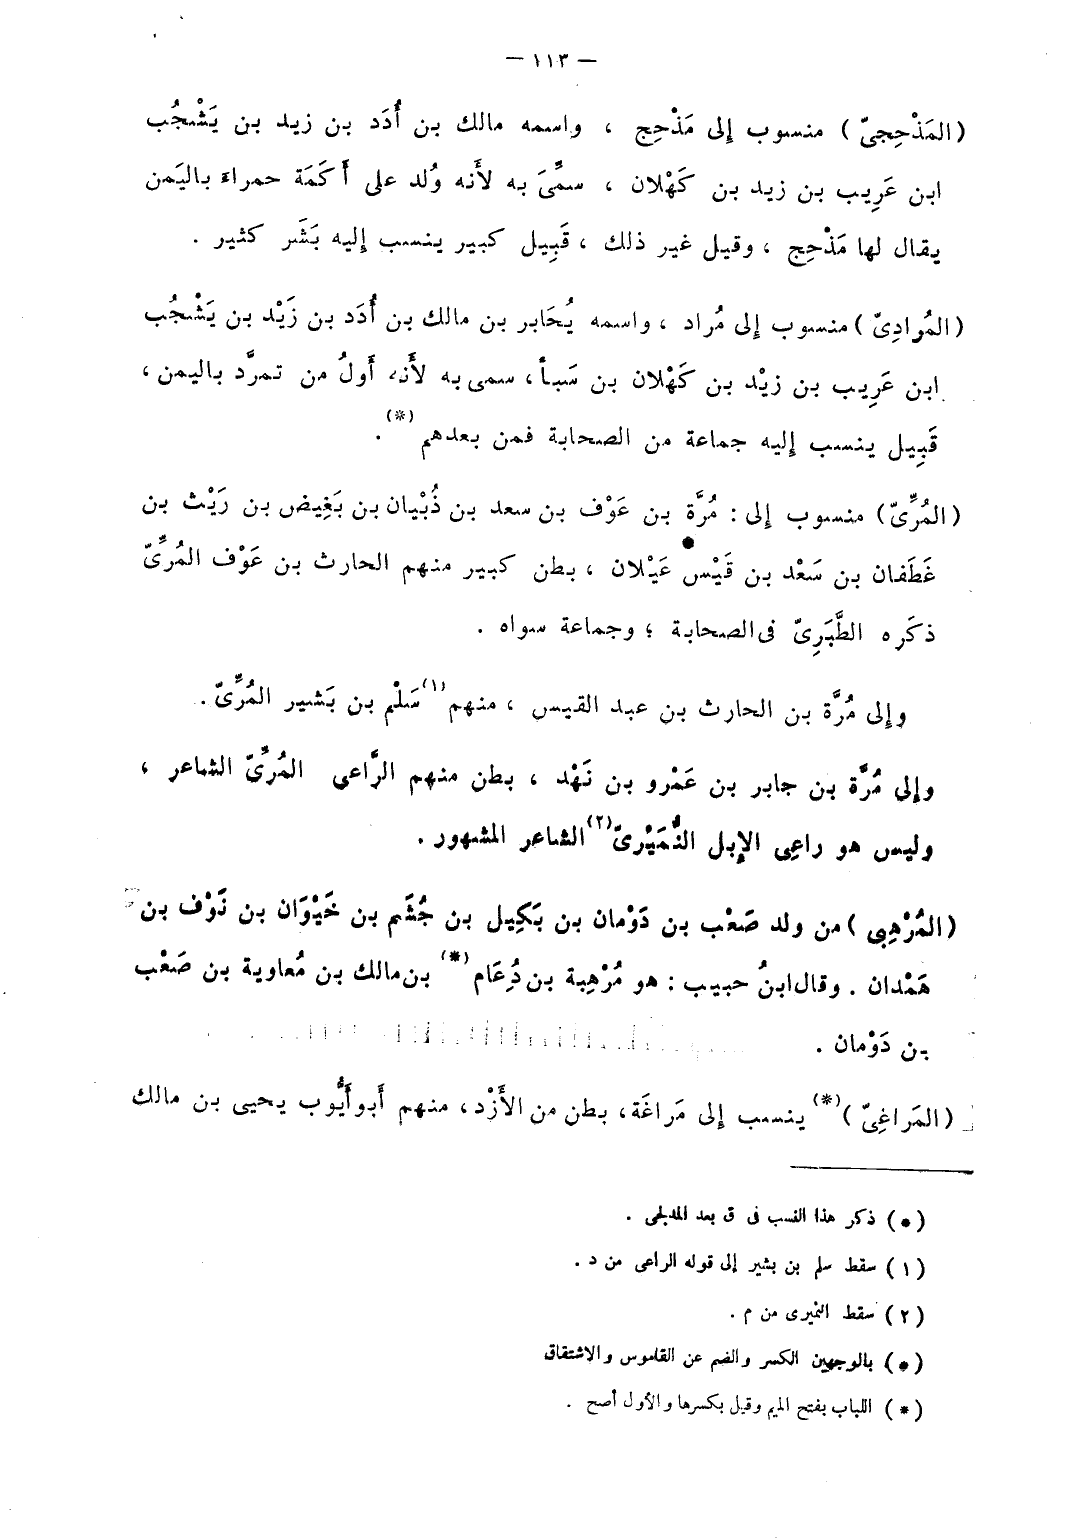 — ١١٣ —
(المَذْحِجىّ) منسوب إلى مَذْحِج ، واسمه مالك بن أُدَد بن زيد بن يَشْجُب
ابن عَرِيب بن زيد بن كَهْلان ، سمِّىَ به لأَنه وُلد على أَكَمَة حمراء باليَمن
يقال لها مَذْحِج ، وقيل غير ذلك ، قَبِيل كبير ينسب إليه بَشَر كثير .
(المُرادِىّ) منسوب إلى مُراد ، واسمه يُحَابر بن مالك بن أُدَد بن زَيْد بن يَشْجُب
ابن عَرِيب بن زيْد بن كَهْلان بن سَبأ ، سمى به لأَنه أَولُ من تمرَّد باليمن ،
قَبِيل ينسب إليه جماعة من الصحابة فمن بعدهم (*) .
(المُرِّىّ) منسوب إلى : مُرَّة بن عَوْف بن سعد بن ذُبْيان بن بَغِيض بن رَيْث بن
غَطَفان بن سَعْد بن قَيْس عَيْلان ، بطن كبير منهم الحارث بن عَوْف المُرِّىّ
ذكَره الطَّبَرِىّ فى الصحابة ؛ وجماعة سواه .
وإلى مُرَّة بن الحارث بن عبد القيس ، منهم (١) سَلْم بن بَشير المُرِّىّ .
وإلى مُرَّة بن جابر بن عَمْرو بن نَهْد ، بطن منهم الرَّاعى المُرِّىّ الشاعر ،
وليس هو راعِى الإبل النُّمَيْرىّ (٢) الشاعر المشهور .
(المُرْهِبى) من ولد صَعْب بن دَوْمان بن بَكِيل بن جُشَم بن خَيْوَان بن نَوْف بن
هَمْدان . وقال ابنُ حبيب : هو مُرْهِبة بن دُعِام (*) بن مالك بن مُعاوية بن صَعْب
بن دَوْمان .
(المَراغِىّ) (*) ينسب إلى مَراغَة، بطن من الأَزْد، منهم أَبو أَيُّوب يحيى بن مالك
(*) ذكر هذا النسب فى ق بعد المدلجى .
(١) سقط سلم بن بشير إلى قوله الراعى من د .
(٢) سقط النميرى من م .
(*) بالوجهين الكسر والضم عن القاموس والاشتقاق
(*) اللباب بفتح الميم وقيل بكسرها والأول أصح .